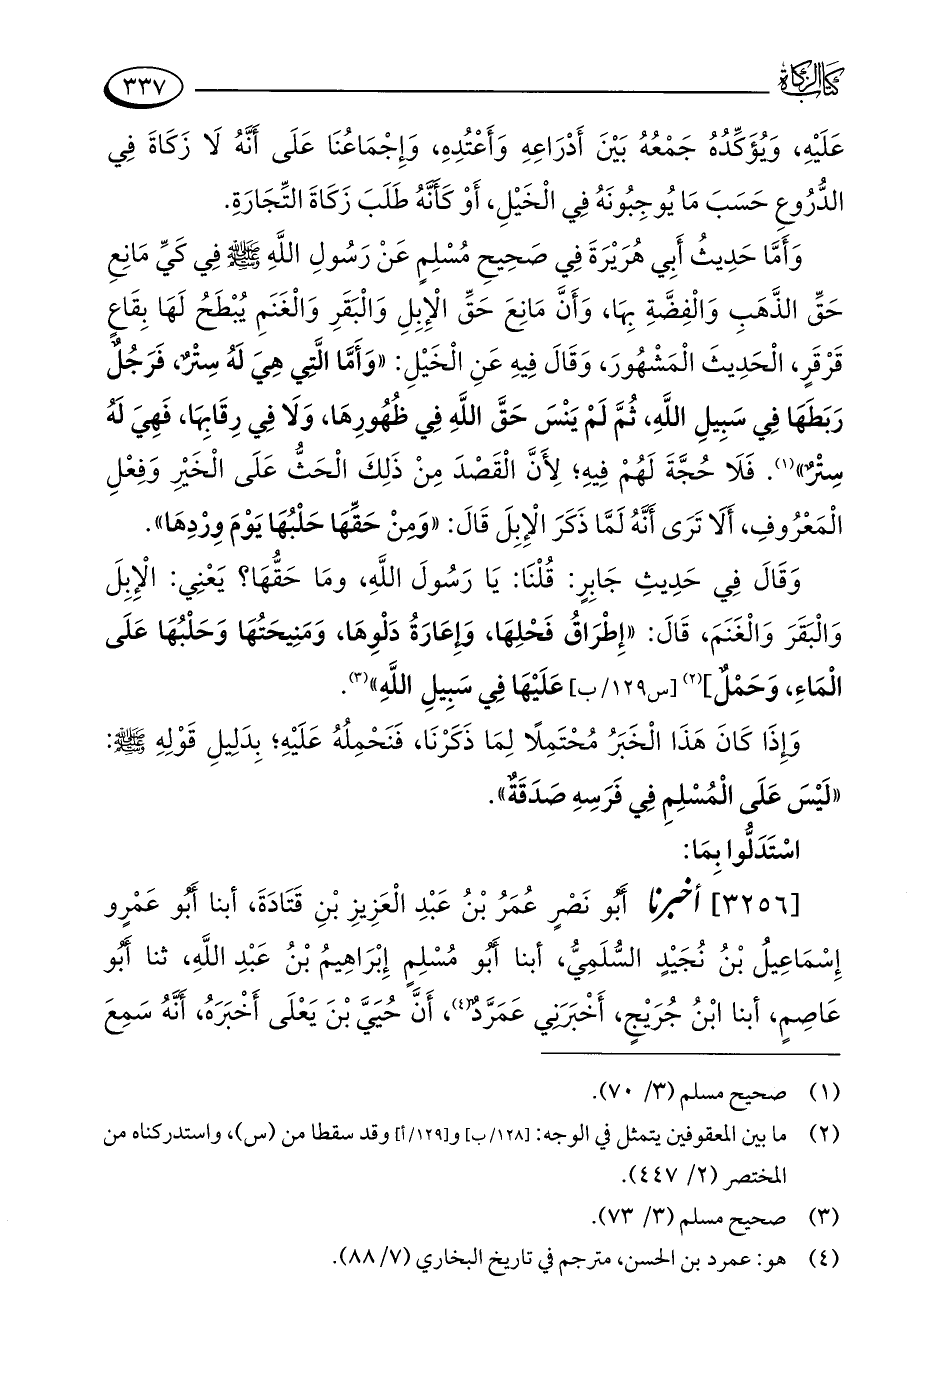 كتاب الزكاة
٣٣٧
عَلَيْهِ، وَيُؤَكِّدُهُ جَمْعُهُ بَيْنَ أَدْرَاعِهِ وَأَعْتُدِهِ، وَإِجْمَاعُنَا عَلَى أَنَّهُ لَا زَكَاةَ فِي
الدُّرُوعِ حَسَبَ مَا يُوجِبُونَهُ فِي الْخَيْلِ، أَوْ كَأَنَّهُ طَلَبَ زَكَاةَ التِّجَارَةِ.
وَأَمَّا حَدِيثُ أَبِي هُرَيْرَةَ فِي صَحِيحِ مُسْلِمٍ عَنْ رَسُولِ اللَّهِ ﷺ فِي كَيِّ مَانِعِ
حَقِّ الذَّهَبِ وَالْفِضَّةِ بِهَا، وَأَنَّ مَانِعَ حَقِّ الْإِبِلِ وَالْبَقَرِ وَالْغَنَمِ يُبْطَحُ لَهَا بِقَاعٍ
قَرْقَرٍ، الْحَدِيثَ الْمَشْهُورَ، وَقَالَ فِيهِ عَنِ الْخَيْلِ: «وَأَمَّا الَّتِي هِيَ لَهُ سِتْرٌ، فَرَجُلٌ
رَبَطَهَا فِي سَبِيلِ اللَّهِ، ثُمَّ لَمْ يَنْسَ حَقَّ اللَّهِ فِي ظُهُورِهَا، وَلَا فِي رِقَابِهَا، فَهِيَ لَهُ
سِتْرٌ»(١). فَلَا حُجَّةَ لَهُمْ فِيهِ؛ لِأَنَّ الْقَصْدَ مِنْ ذَلِكَ الْحَثُّ عَلَى الْخَيْرِ وَفِعْلِ
الْمَعْرُوفِ، أَلَا تَرَى أَنَّهُ لَمَّا ذَكَرَ الْإِبِلَ قَالَ: «وَمِنْ حَقِّهَا حَلْبُهَا يَوْمَ وِرْدِهَا».
وَقَالَ فِي حَدِيثِ جَابِرٍ: قُلْنَا: يَا رَسُولَ اللَّهِ، ومَا حَقُّهَا؟ يَعْنِي: الْإِبِلَ
وَالْبَقَرَ وَالْغَنَمَ، قَالَ: «إِطْرَاقُ فَحْلِهَا، وَإِعَارَةُ دَلْوِهَا، وَمَنِيحَتُهَا وَحَلْبُهَا عَلَى
الْمَاءِ، وَحَمْلٌ](٢) [س١٢٩/ب] عَلَيْهَا فِي سَبِيلِ اللَّهِ»(٣).
وَإِذَا كَانَ هَذَا الْخَبَرُ مُحْتَمِلًا لِمَا ذَكَرْنَا، فَنَحْمِلُهُ عَلَيْهِ؛ بِدَلِيلِ قَوْلِهِ ﷺ:
«لَيْسَ عَلَى الْمُسْلِمِ فِي فَرَسِهِ صَدَقَةٌ».
اسْتَدَلُّوا بِمَا:
[٣٢٥٦] أخبرنا أَبُو نَصْرٍ عُمَرُ بْنُ عَبْدِ الْعَزِيزِ بْنِ قَتَادَةَ، أبنا أَبُو عَمْرٍو
إِسْمَاعِيلُ بْنُ نُجَيْدٍ السُّلَمِيُّ، أبنا أَبُو مُسْلِمٍ إِبْرَاهِيمُ بْنُ عَبْدِ اللَّهِ، ثنا أَبُو
عَاصِمٍ، أبنا ابْنُ جُرَيْجٍ، أَخْبَرَنِي عَمَرَّدٌ(٤)، أَنَّ حُيَيَّ بْنَ يَعْلَى أَخْبَرَهُ، أَنَّهُ سَمِعَ
(١) صحيح مسلم (٣/ ٧٠).
(٢) ما بين المعقوفين يتمثل في الوجه: [١٢٨/ب] و[١٢٩/أ] وقد سقطا من (س)، واستدركناه من
المختصر (٢/ ٤٤٧).
(٣) صحيح مسلم (٣/ ٧٣).
(٤) هو: عمرد بن الحسن، مترجم في تاريخ البخاري (٧/ ٨٨).